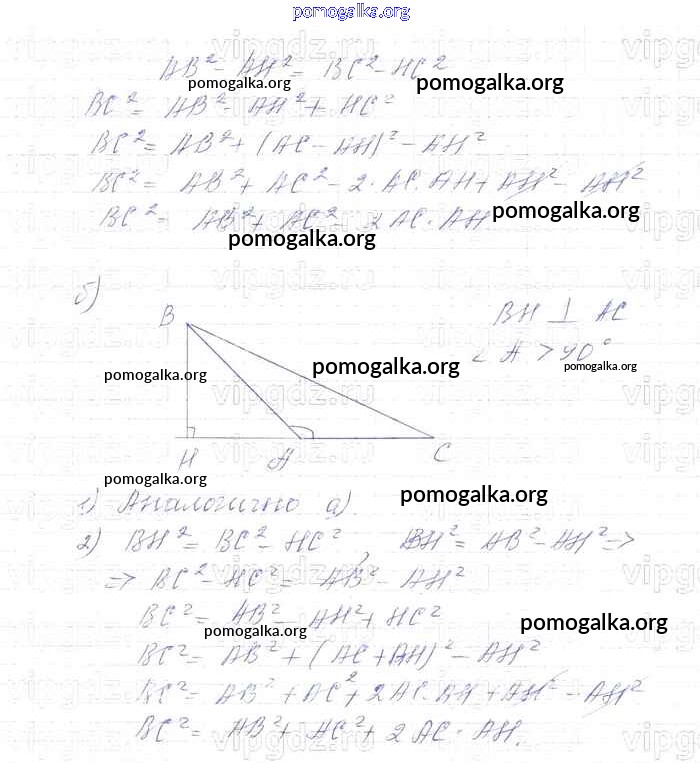 pomogalka.org
AB² - AH² = BC² - HC²
pomogalka.org pomogalka.org
BC² = AB² - AH² + HC²
BC² = AB² + (AC - AH)² - AH²
BC² = AB² + AC² - 2 · AC · AH + AH² - AH²
BC² = AB² + AC² - 2 AC · AH
pomogalka.org
pomogalka.org
б)
B
BH ⊥ AC
∠ A > 90°
pomogalka.org pomogalka.org pomogalka.org
H A C
pomogalka.org
1) Аналогично а).
pomogalka.org
2) BH² = BC² - HC², BH² = AB² - AH² =>
=> BC² - HC² = AB² - AH²
BC² = AB² - AH² + HC²
pomogalka.org pomogalka.org
BC² = AB² + (AC + AH)² - AH²
BC² = AB² + AC² + 2AC · AH + AH² - AH²
BC² = AB² + AC² + 2 AC · AH.